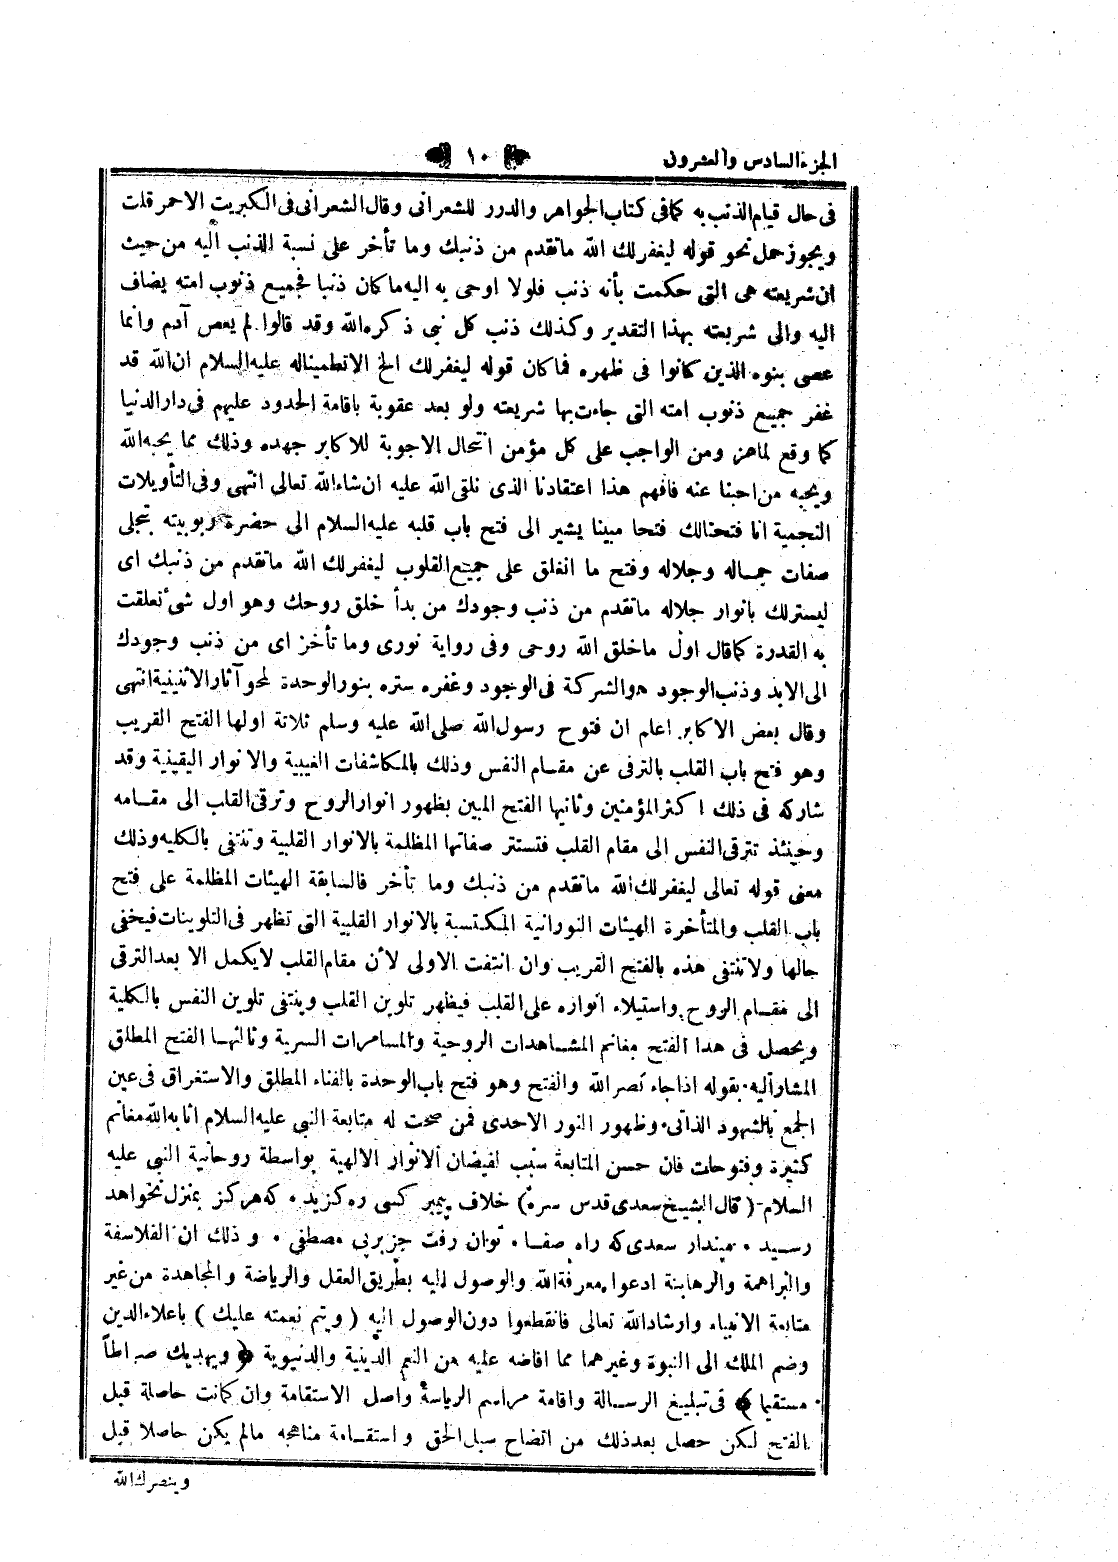 الجزء السادس والعشرون
١٠
فى حال قيام الذنب به كما فى كتاب الجواهر والدرر للشعرانى وقال الشعرانى فى الكبريت الاحمر قلت
ويجوز حمل نحو قوله ليغفر لك الله ماتقدم من ذنبك وما تأخر على نسبة الذنب اليه من حيث
ان شريعته هى التى حكمت بأنه ذنب فلولا اوحى به اليه ما كان ذنبا فجميع ذنوب امته يضاف
اليه والى شريعته بهذا التقدير وكذلك ذنب كل نبى ذكره الله وقد قالوا لم يعص آدم وانما
عصى بنوه الذين كانوا فى ظهره فما كان قوله ليغفر لك الخ الاتطمينا له عليه السلام ان الله قد
غفر جميع ذنوب امته التى جاءت بها شريعته ولو بعد عقوبة باقامة الحدود عليهم فى دار الدنيا
كما وقع لماعز ومن الواجب على كل مؤمن انتحال الاجوبة للاكابر جهده وذلك مما يحبه الله
ويحبه من احبنا عنه فافهم هذا اعتقادنا الذى نلقى الله عليه ان شاء الله تعالى انتهى وفى التأويلات
النجمية انا فتحنالك فتحا مبينا يشير الى فتح باب قلبه عليه السلام الى حضرة ربوبيته بتجلى
صفات جماله وجلاله وفتح ما انغلق على جميع القلوب ليغفر لك الله ماتقدم من ذنبك اى
ليستر لك بانوار جلاله ماتقدم من ذنب وجودك من بدأ خلق روحك وهو اول شئ تعلقت
به القدرة كما قال اول ماخلق الله روحى وفى رواية نورى وما تأخر اى من ذنب وجودك
الى الابد وذنب الوجود هو الشركة فى الوجود وغفره ستره بنور الوحدة لمحو آثار الاثنينية انتهى
وقال بعض الاكابر اعلم ان فتوح رسول الله صلى الله عليه وسلم ثلاثة اولها الفتح القريب
وهو فتح باب القلب بالترقى عن مقام النفس وذلك بالمكاشفات الغيبية والانوار اليقينية وقد
شاركه فى ذلك اكثر المؤمنين وثانيها الفتح المبين بظهور انوار الروح وترقى القلب الى مقامه
وحينئذ تترقى النفس الى مقام القلب فتستتر صفاتها المظلمة بالانوار القلبية وتنتفى بالكليه وذلك
معنى قوله تعالى ليغفر لك الله ماتقدم من ذنبك وما تأخر فالسابقة الهيئات المظلمة على فتح
باب القلب والمتأخرة الهيئات النورانية المكتسبة بالانوار القلبية التى تظهر فى التلوينات فيخفى
حالها ولا تنتفى هذه بالفتح القريب وان انتفت الاولى لأن مقام القلب لايكمل الا بعد الترقى
الى مقام الروح واستيلاء انواره على القلب فيظهر تلوين القلب وينتفى تلوين النفس بالكلية
ويحصل فى هذا الفتح مغانم المشاهدات الروحية والمسامرات السرية وثالثها الفتح المطلق
المشار اليه بقوله اذا جاء نصر الله والفتح وهو فتح باب الوحدة بالفناء المطلق والاستغراق فى عين
الجمع بالشهود الذاتى وظهور النور الاحدى فمن صحت له متابعة النبى عليه السلام اثابه الله مغانم
كثيرة وفتوحات فان حسن المتابعة سبب لفيضان الانوار الالهية بواسطة روحانية النبى عليه
السلام (قال الشيخ سعدى قدس سره) خلاف پيمبر كسى ره كزيد . كه هركز بمنزل نخواهد
رسيد . مپندار سعدى كه راه صفا . توان رفت جز بر پى مصطفى . وذلك ان الفلاسفة
والبراهمة والرهابنة ادعوا معرفة الله والوصول اليه بطريق العقل والرياضة والمجاهدة من غير
متابعة الانبياء وارشاد الله تعالى فانقطعوا دون الوصول اليه ( ويتم نعمته عليك ) باعلاء الدين
وضم الملك الى النبوة وغيرهما مما افاضه عليه من النعم الدينية والدنيوية ﴿ ويهديك صراطا
مستقيما ﴾ فى تبليغ الرسالة واقامة مراسم الرياسة واصل الاستقامة وان كانت حاصلة قبل
الفتح لكن حصل بعد ذلك من اتضاح سبل الحق واستقامة مناهجه مالم يكن حاصلا قبل
وينصرك الله